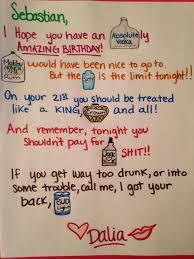 Sebastian,
I Hope you have an Absolut Vodka
AMAZING BIRTHDAY!
Malibu Rum would have been nice to go to.
But the Sky is the limit tonight!!
On your 21st you should be treated
like a KING, Crown and all!
And remember, tonight you
Shouldn't pay for Jager
SHIT!!
If you get way too drunk, or into
some trouble, call me, I got your
back, Bud Light
Dalia